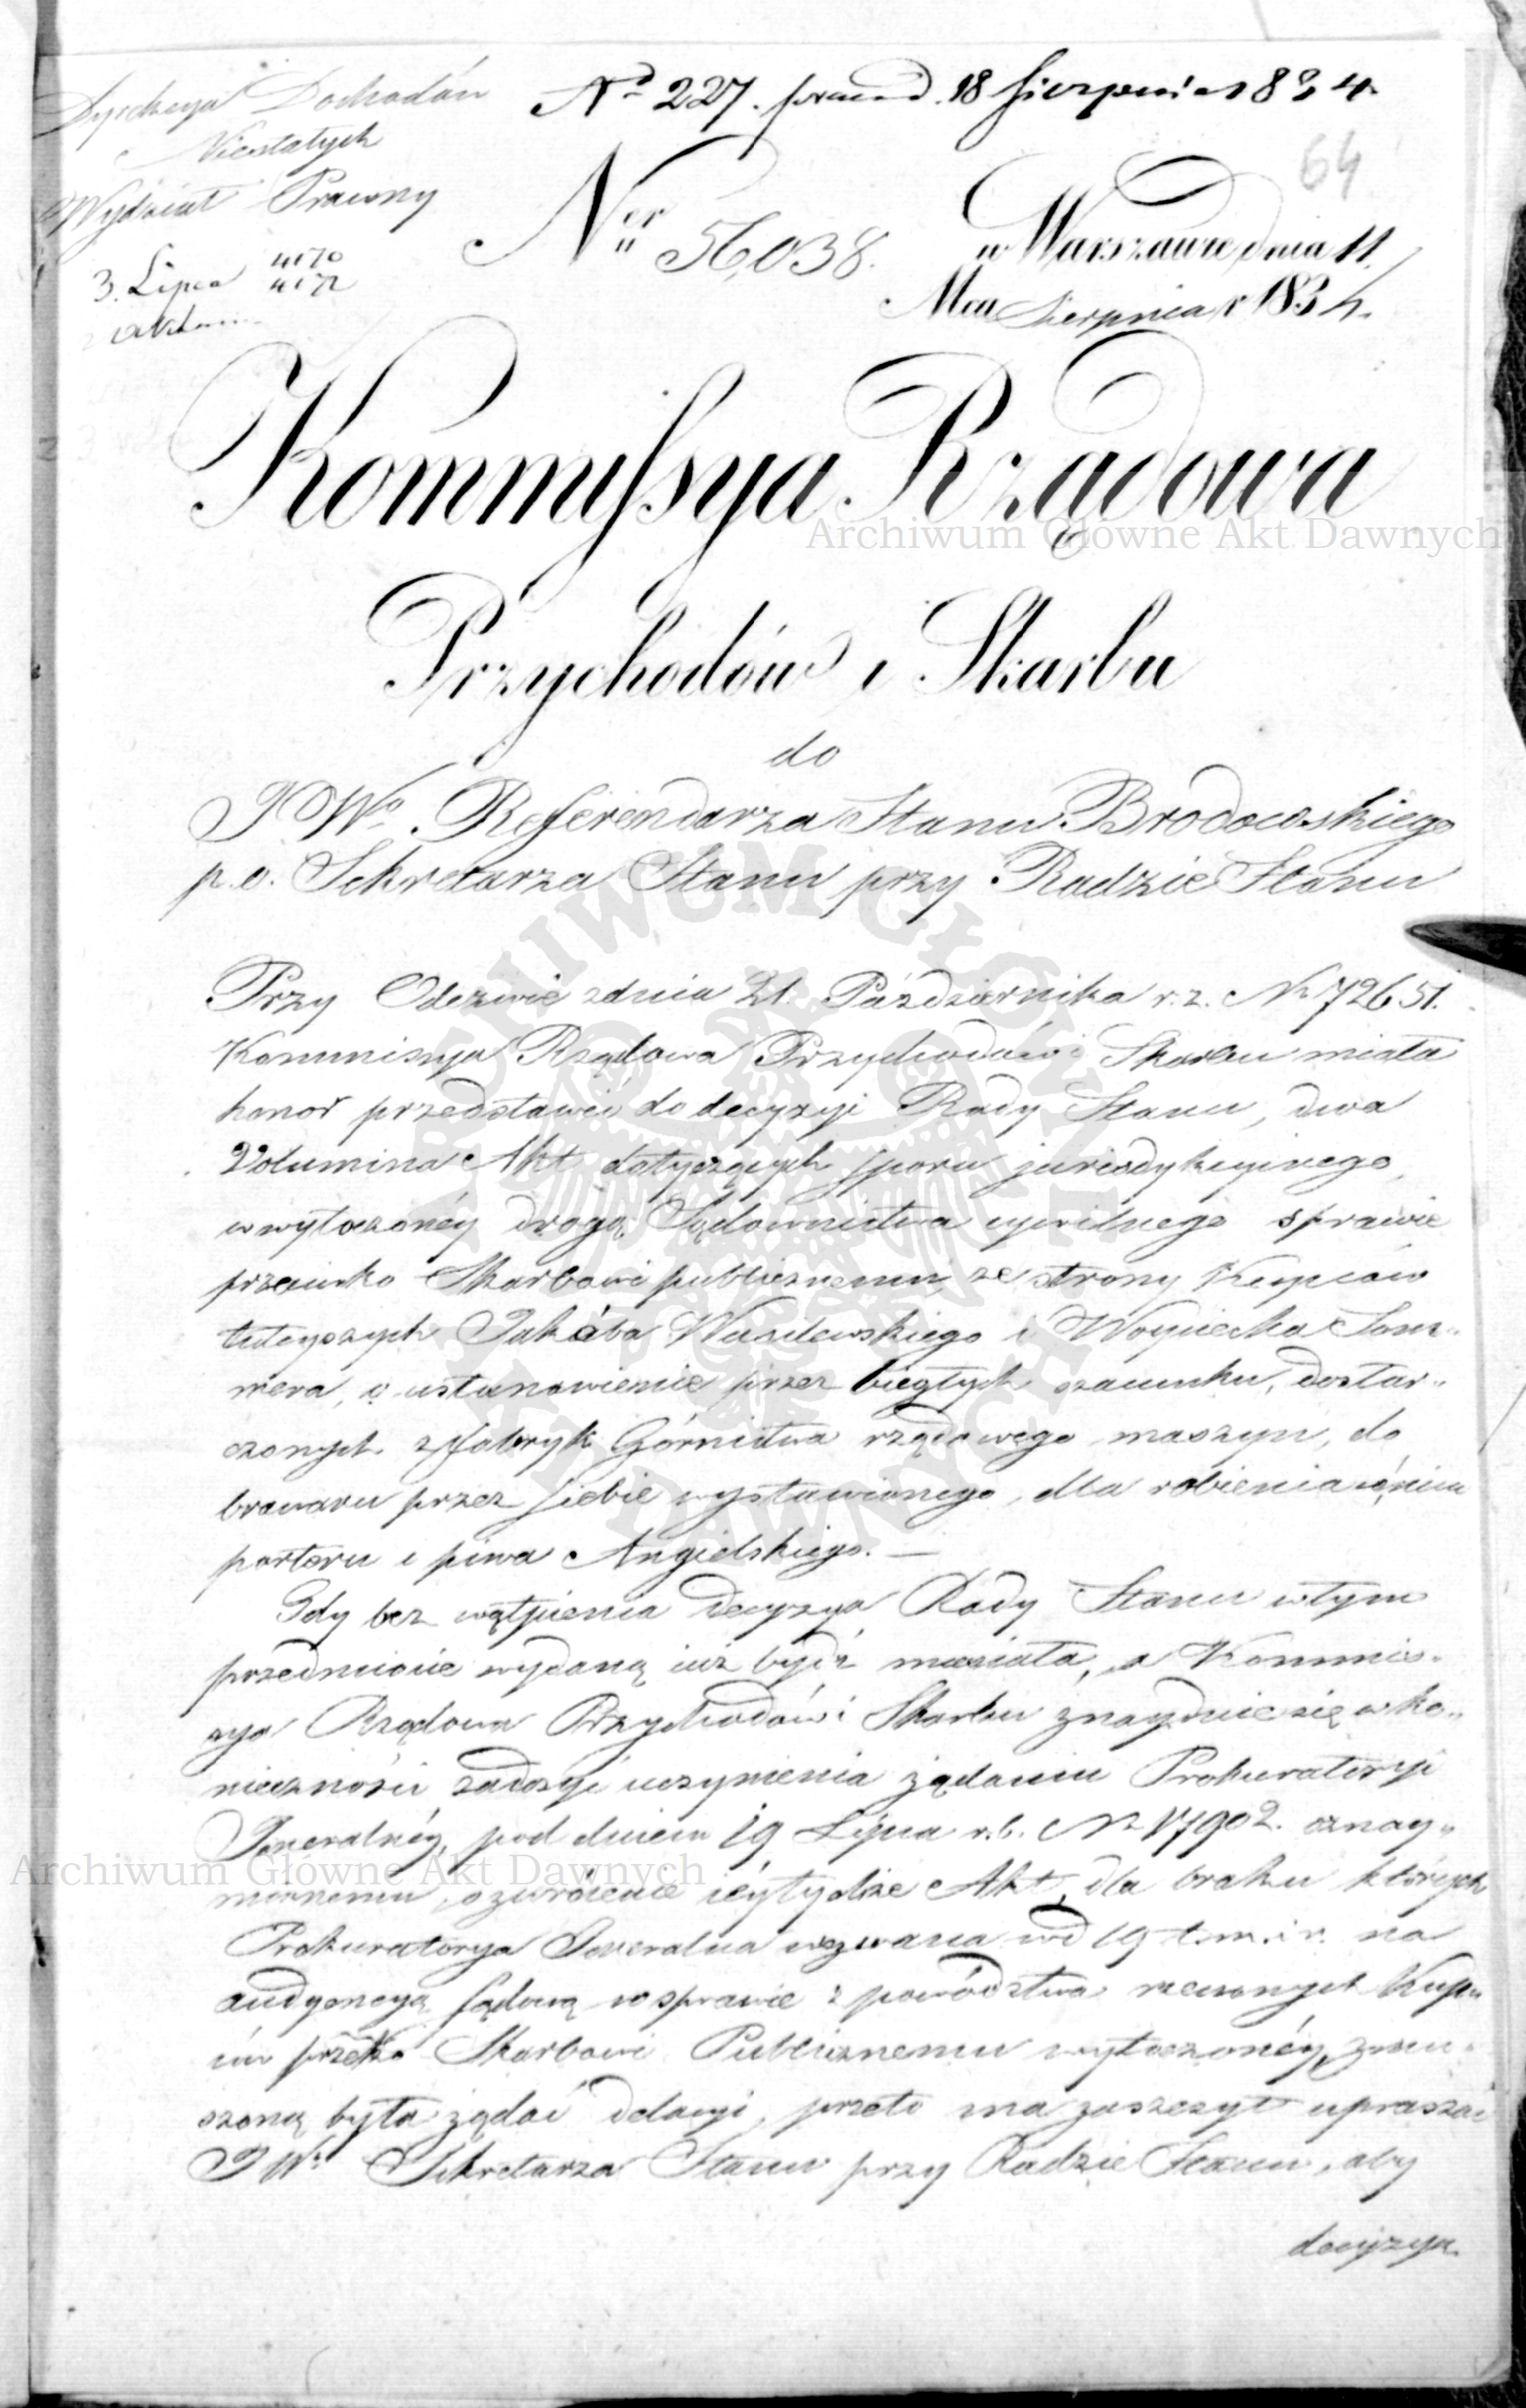 Dyrekcya Dochodów
Niestałych
Wydział Prawny
3. Lipca 4170
4172
Nd 227. 18 Sierpnia 1834.
64
Ner 56,038. w Warszawie dnia 11.
Mca Sierpnia r 1834.
Kommyssya Rządowa
Przychodów i Skarbu
do
JWo Referendarza Stanu Brodowskiego
p.o. Sekretarza Stanu przy Radzie Stanu
Przy Odezwie z dnia 21. Października r.z. Nr 72651.
Kommissya Rządowa Przychodów i Skarbu miała
honor przedstawić do decyzyi Rady Stanu, dwa
Volumina Akt dotyczących sporu jurisdykcyinego,
w wytoczonéy drogą Sądownictwa cywilnego sprawie
przeciwko Skarbowi publicznemu, ze strony Kupców
tuteyszych Jakóba Wasilewskiego i Woyciecha Som-
mera, o ustanowienie przez biegłych szacunku, dostar-
czonych z fabryk Górnictwa rządowego maszyn, do
browaru przez siebie wystawionego, dla robienia w nim
porteru i piwa Angielskiego. —
Gdy bez wątpienia decyzya Rady Stanu w tym
przedmiocie wydaną iuż bydź musiała, a Kommis-
sya Rządowa Przychodów i Skarbu znayduie się w ko-
nieczności zadosyć uczynienia żądaniu Prokuratoryi
Jeneralnéy, pod dniem 19 Lipca r.b. Nr 17902. oznay-
mionemu, o zwrócenie iéy tychże Akt, dla braku których
Prokuratorya Jeneralna wezwana wd 19 t.m.i r. na
audyencyą sądową w sprawie z powództwa rzeczonych Kup-
ców przeko Skarbowi Publicznemu wytoczonéy, zmu-
szoną była żądać delacyi, przeto ma zaszczyt upraszać
JWo Sekretarza Stanu przy Radzie Stanu, aby
decyzya
Archiwum Główne Akt Dawnych
Archiwum Główne Akt Dawnych
ARCHIWUM GŁÓWNE AKT DAWNYCH